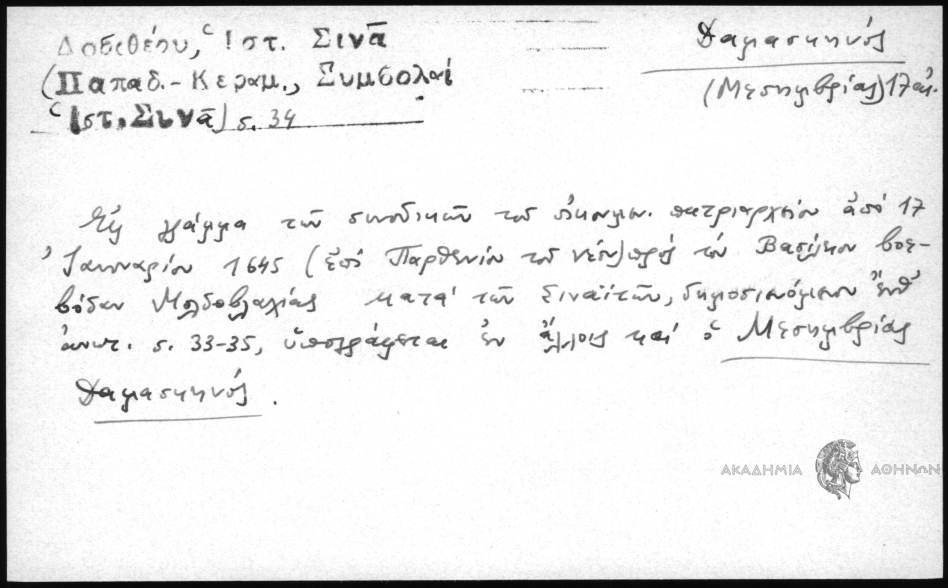 Δοσιθέου, Ἱστ. Σινᾶ
(Παπαδ.-Κεραμ., Συμβολαί
Ἱστ. Σινᾶ) σ. 34
Δαμασκηνός
(Μεσημβρίας) 17 αἰ.
Εἰς γράμμα τῶν συνοδικῶν τοῦ Οἰκουμεν. πατριαρχείου ἀπό 17
Ἰανουαρίου 1645 (ἐπί Παρθενίου τοῦ νέου) πρός τόν Βασίλειον βοε-
βόδαν Μολδοβλαχίας κατά τῶν Σιναϊτῶν, δημοσιευόμενον ἔνθ'
ἀνωτ. σ. 33-35, ὑπογράφεται ἐν ἄλλοις καί ὁ Μεσημβρίας
Δαμασκηνός.
ΑΚΑΔΗΜΙΑ ΑΘΗΝΩΝ